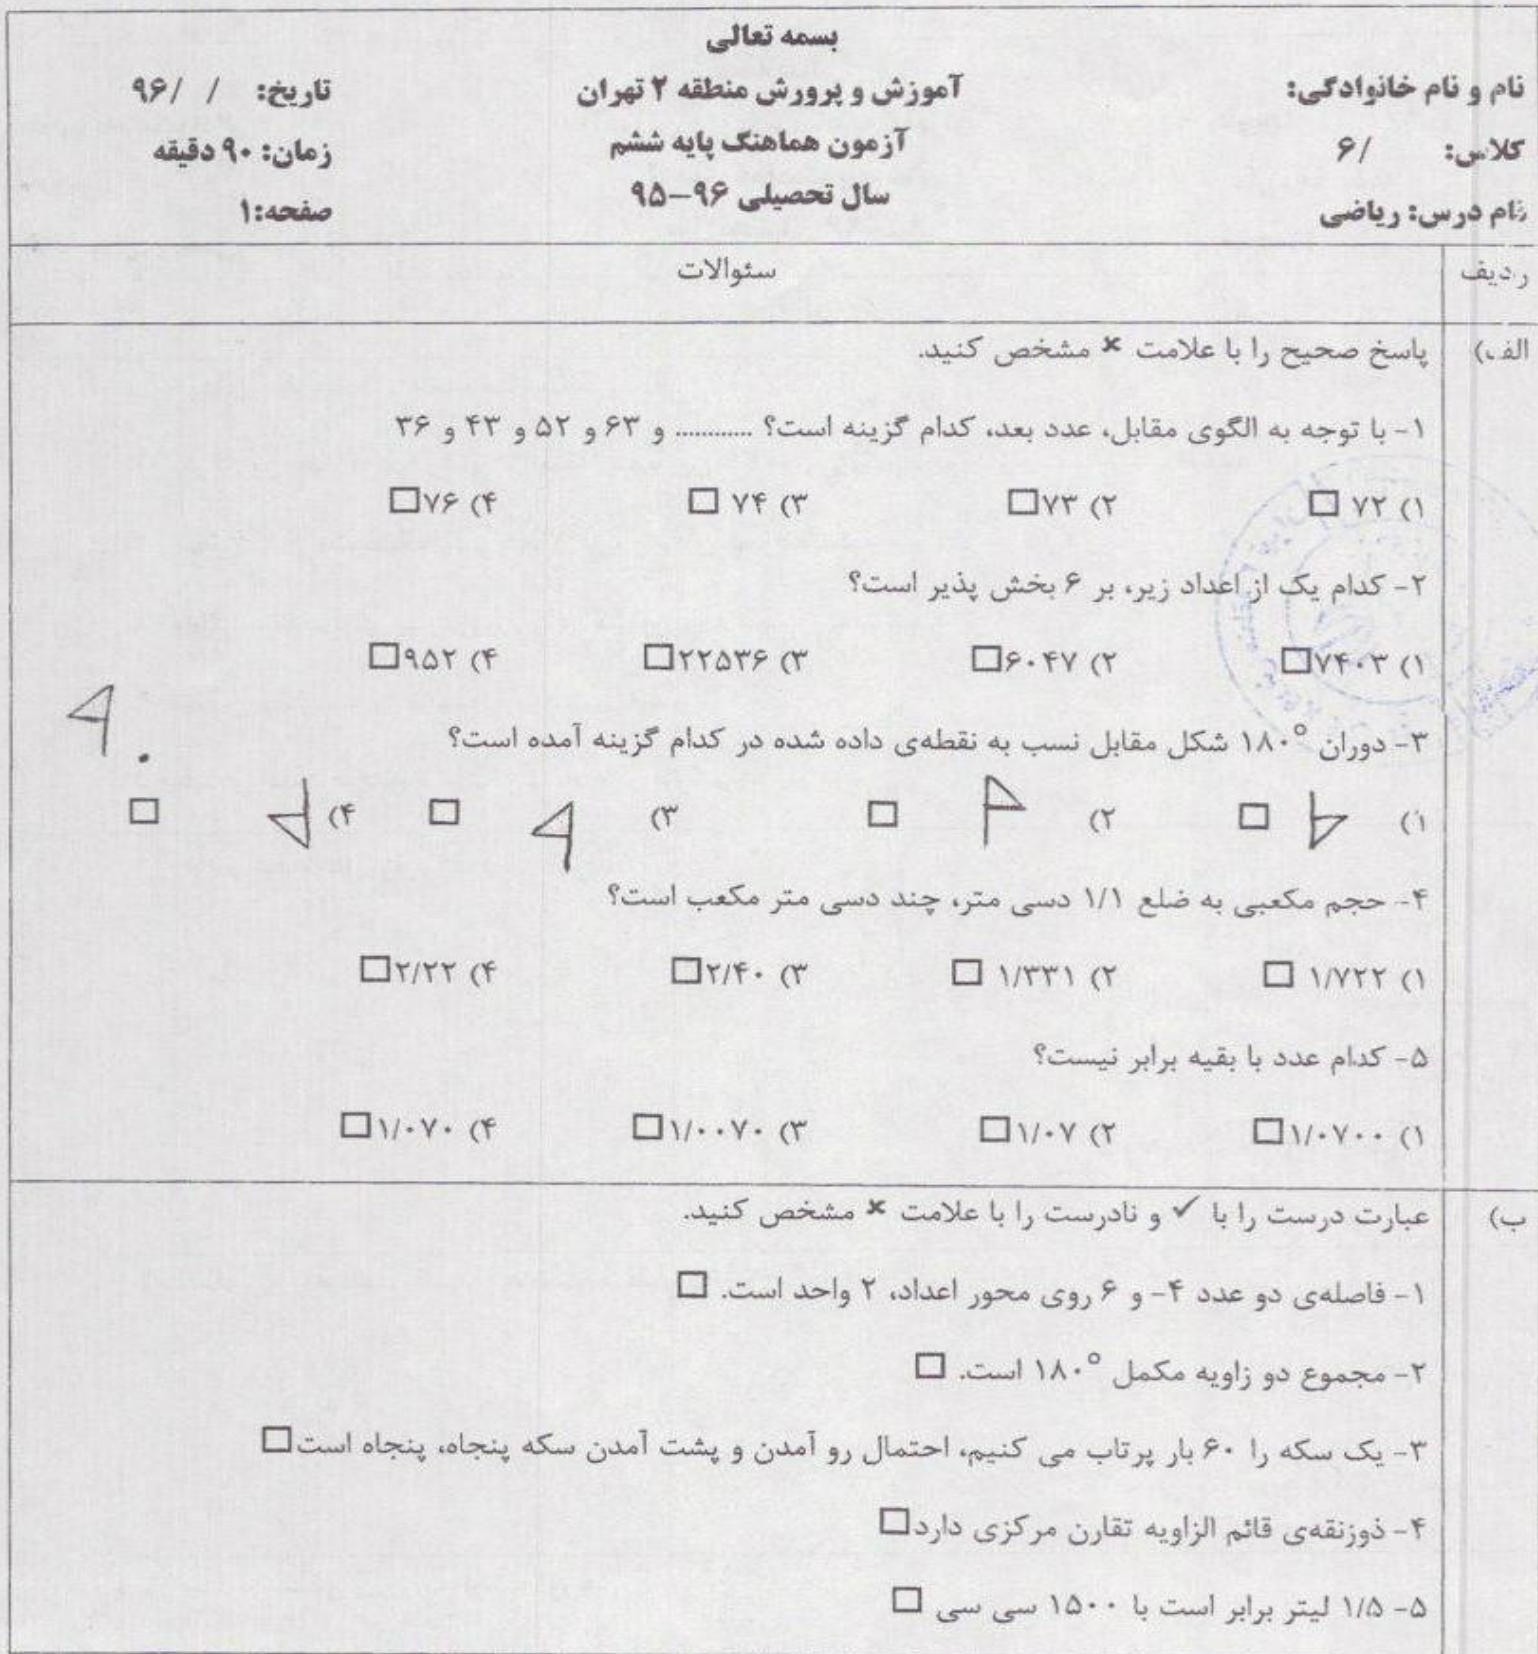 بسمه تعالی
نام و نام خانوادگی:
آموزش و پرورش منطقه ۲ تهران
تاریخ: / /۹۶
کلاس: /۶
آزمون هماهنگ پایه ششم
زمان: ۹۰ دقیقه
نام درس: ریاضی
سال تحصیلی ۹۶-۹۵
صفحه:۱
ردیف سئوالات
الف) پاسخ صحیح را با علامت × مشخص کنید.
۱- با توجه به الگوی مقابل، عدد بعد، کدام گزینه است؟ ............ و ۶۳ و ۵۲ و ۴۳ و ۳۶
۱) ۷۲ □ ۲) ۷۳ □ ۳) ۷۴ □ ۴) ۷۶ □
۲- کدام یک از اعداد زیر، بر ۶ بخش پذیر است؟
۱) ۷۴۰۳ □ ۲) ۶۰۴۷ □ ۳) ۲۲۵۳۶ □ ۴) ۹۵۲ □
۳- دوران ۱۸۰° شکل مقابل نسب به نقطه‌ی داده شده در کدام گزینه آمده است؟
۱) □ ۲) □ ۳) □ ۴) □
۴- حجم مکعبی به ضلع ۱/۱ دسی متر، چند دسی متر مکعب است؟
۱) ۱/۷۲۲ □ ۲) ۱/۳۳۱ □ ۳) ۲/۴۰ □ ۴) ۲/۲۲ □
۵- کدام عدد با بقیه برابر نیست؟
۱) ۱/۰۷۰۰ □ ۲) ۱/۰۷ □ ۳) ۱/۰۰۷۰ □ ۴) ۱/۰۷۰ □
ب) عبارت درست را با ✓ و نادرست را با علامت × مشخص کنید.
۱- فاصله‌ی دو عدد ۴- و ۶ روی محور اعداد، ۲ واحد است. □
۲- مجموع دو زاویه مکمل ۱۸۰° است. □
۳- یک سکه را ۶۰ بار پرتاب می کنیم، احتمال رو آمدن و پشت آمدن سکه پنجاه، پنجاه است □
۴- ذوزنقه‌ی قائم الزاویه تقارن مرکزی دارد □
۵- ۱/۵ لیتر برابر است با ۱۵۰۰ سی سی □